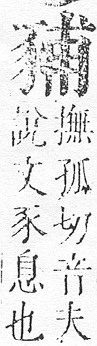 豧
撫孤切音夫
說文豕息也